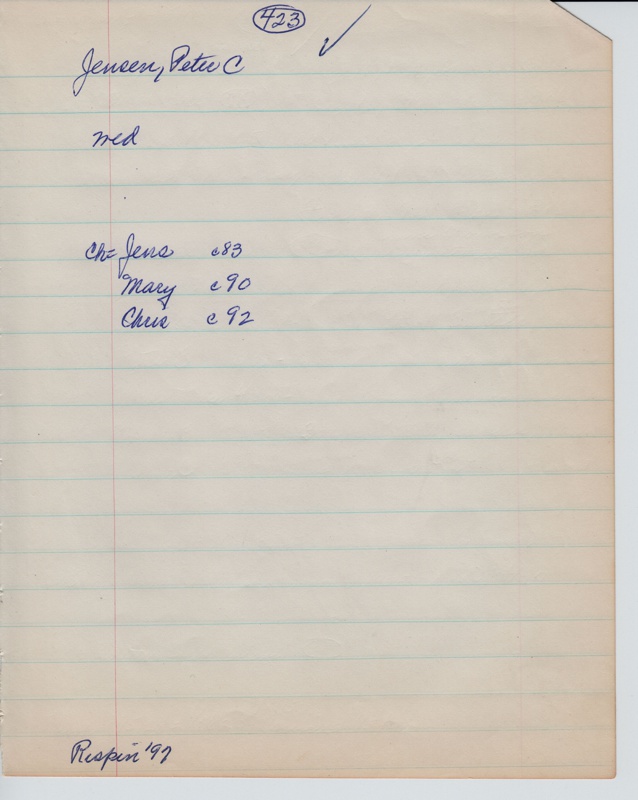 423
Jensen, Peter C
med
Ch= Jens c83
Mary c90
Chris c92
Rispin '97